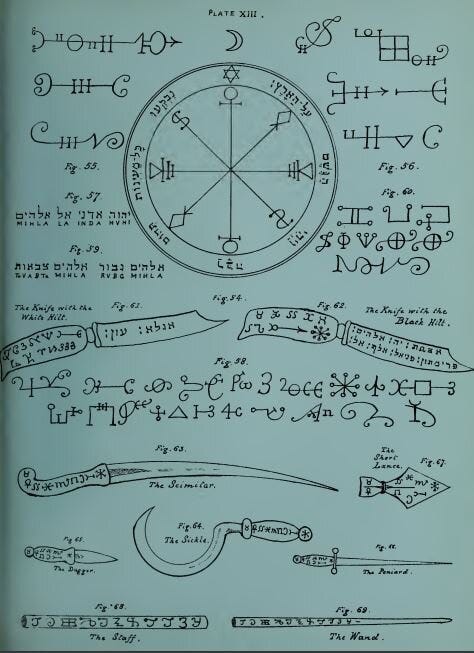 PLATE XIII.
נבקעו
כל-מעינות
תהום
רבה
ויהי
הגשם
על-הארץ:
Fig. 55.
Fig. 56.
Fig. 57.
יהוה אדני אל אלהים
MIHLA LA INDA HVHI
Fig. 60.
Fig. 59.
אלהים גבור אלהים צבאות
MIHLA RVBG MIHLA
Fig. 54.
The Knife with the
White Hilt.
Fig. 61.
Fig. 62.
The Knife with the
Black Hilt.
Fig. 58.
Fig. 63.
The Scimitar.
The
Short
Lance.
Fig. 67.
Fig. 64.
The Sickle.
Fig. 65.
The Dagger.
The Poniard.
Fig. 68.
The Staff.
Fig. 69.
The Wand.